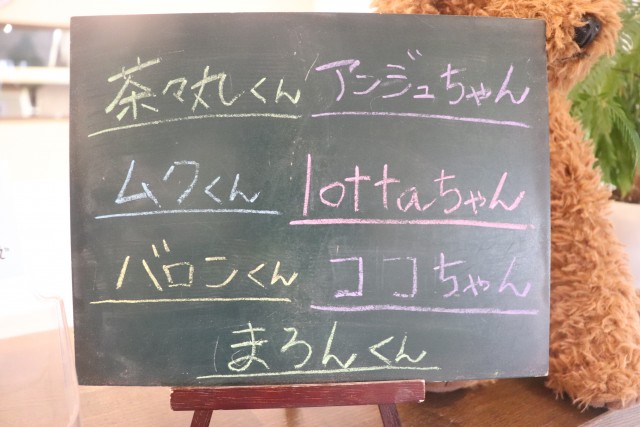 茶々丸くん アンジュちゃん
ムクくん lottaちゃん
バロンくん ココちゃん
まろんくん